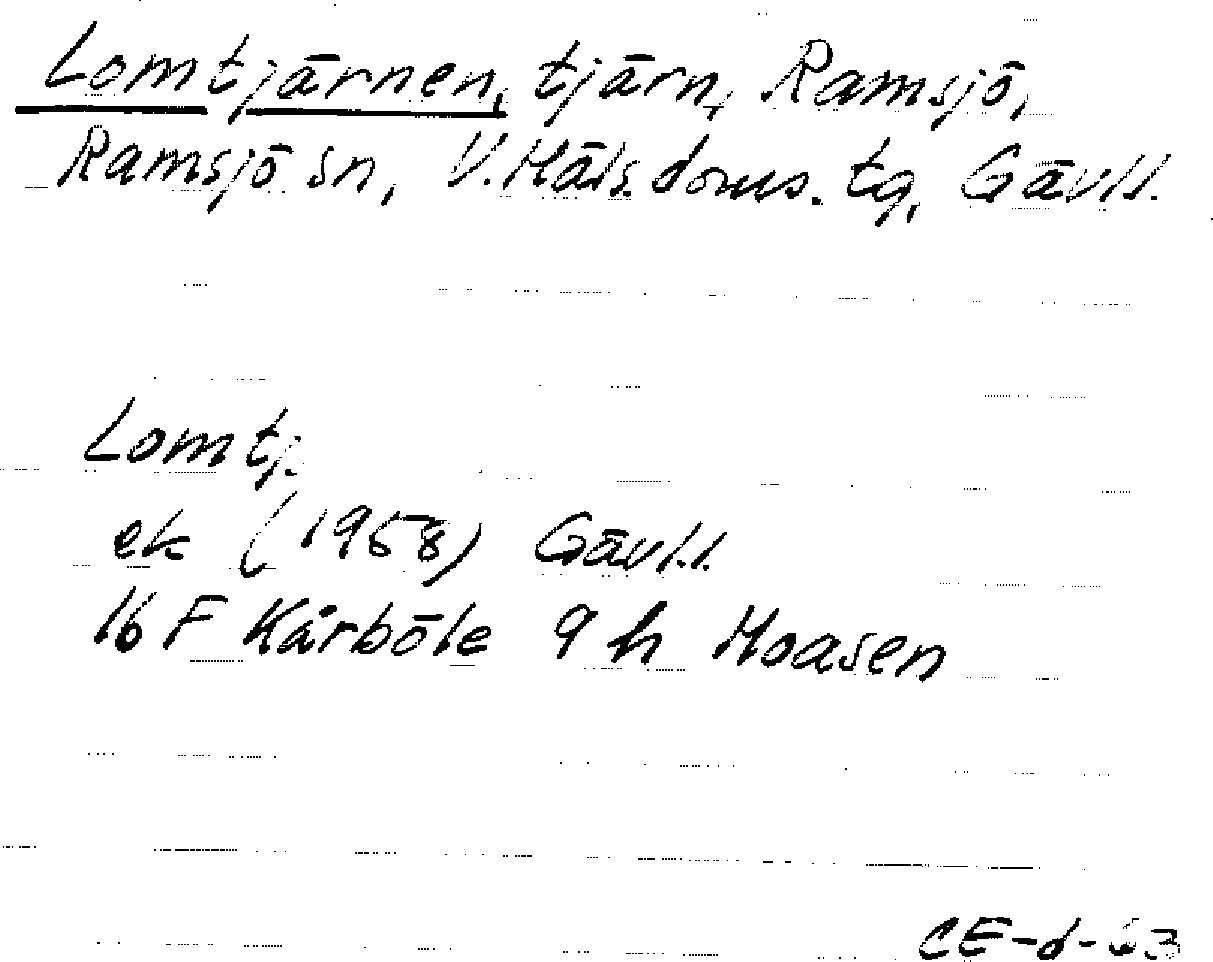 Lomtjärnen, tjärn, Ramsjö,
Ramsjö sn, V. Häls. doms. tg, Gävl.l.
Lomtj.
ek (1958) Gävl.l.
16 F Kårböle 9 h Moasen
CE-d-63